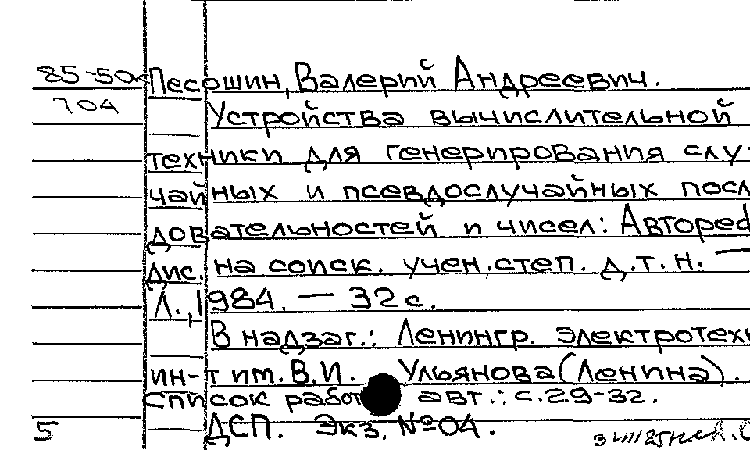 85-50к Песошин, Валерий Андреевич.
704 Устройства вычислительной
техники для генерирования слу-
чайных и псевдослучайных посл
довательностей и чисел: Автореф
дис. на соиск. учен. степ. д.т.н. —
Л., 1984. — 32 с.
В надзаг.: Ленингр. электротехн
ин-т им. В.И. Ульянова (Ленина).
Список работ авт.: с.29-32.
ДСП. Экз. №04.
5